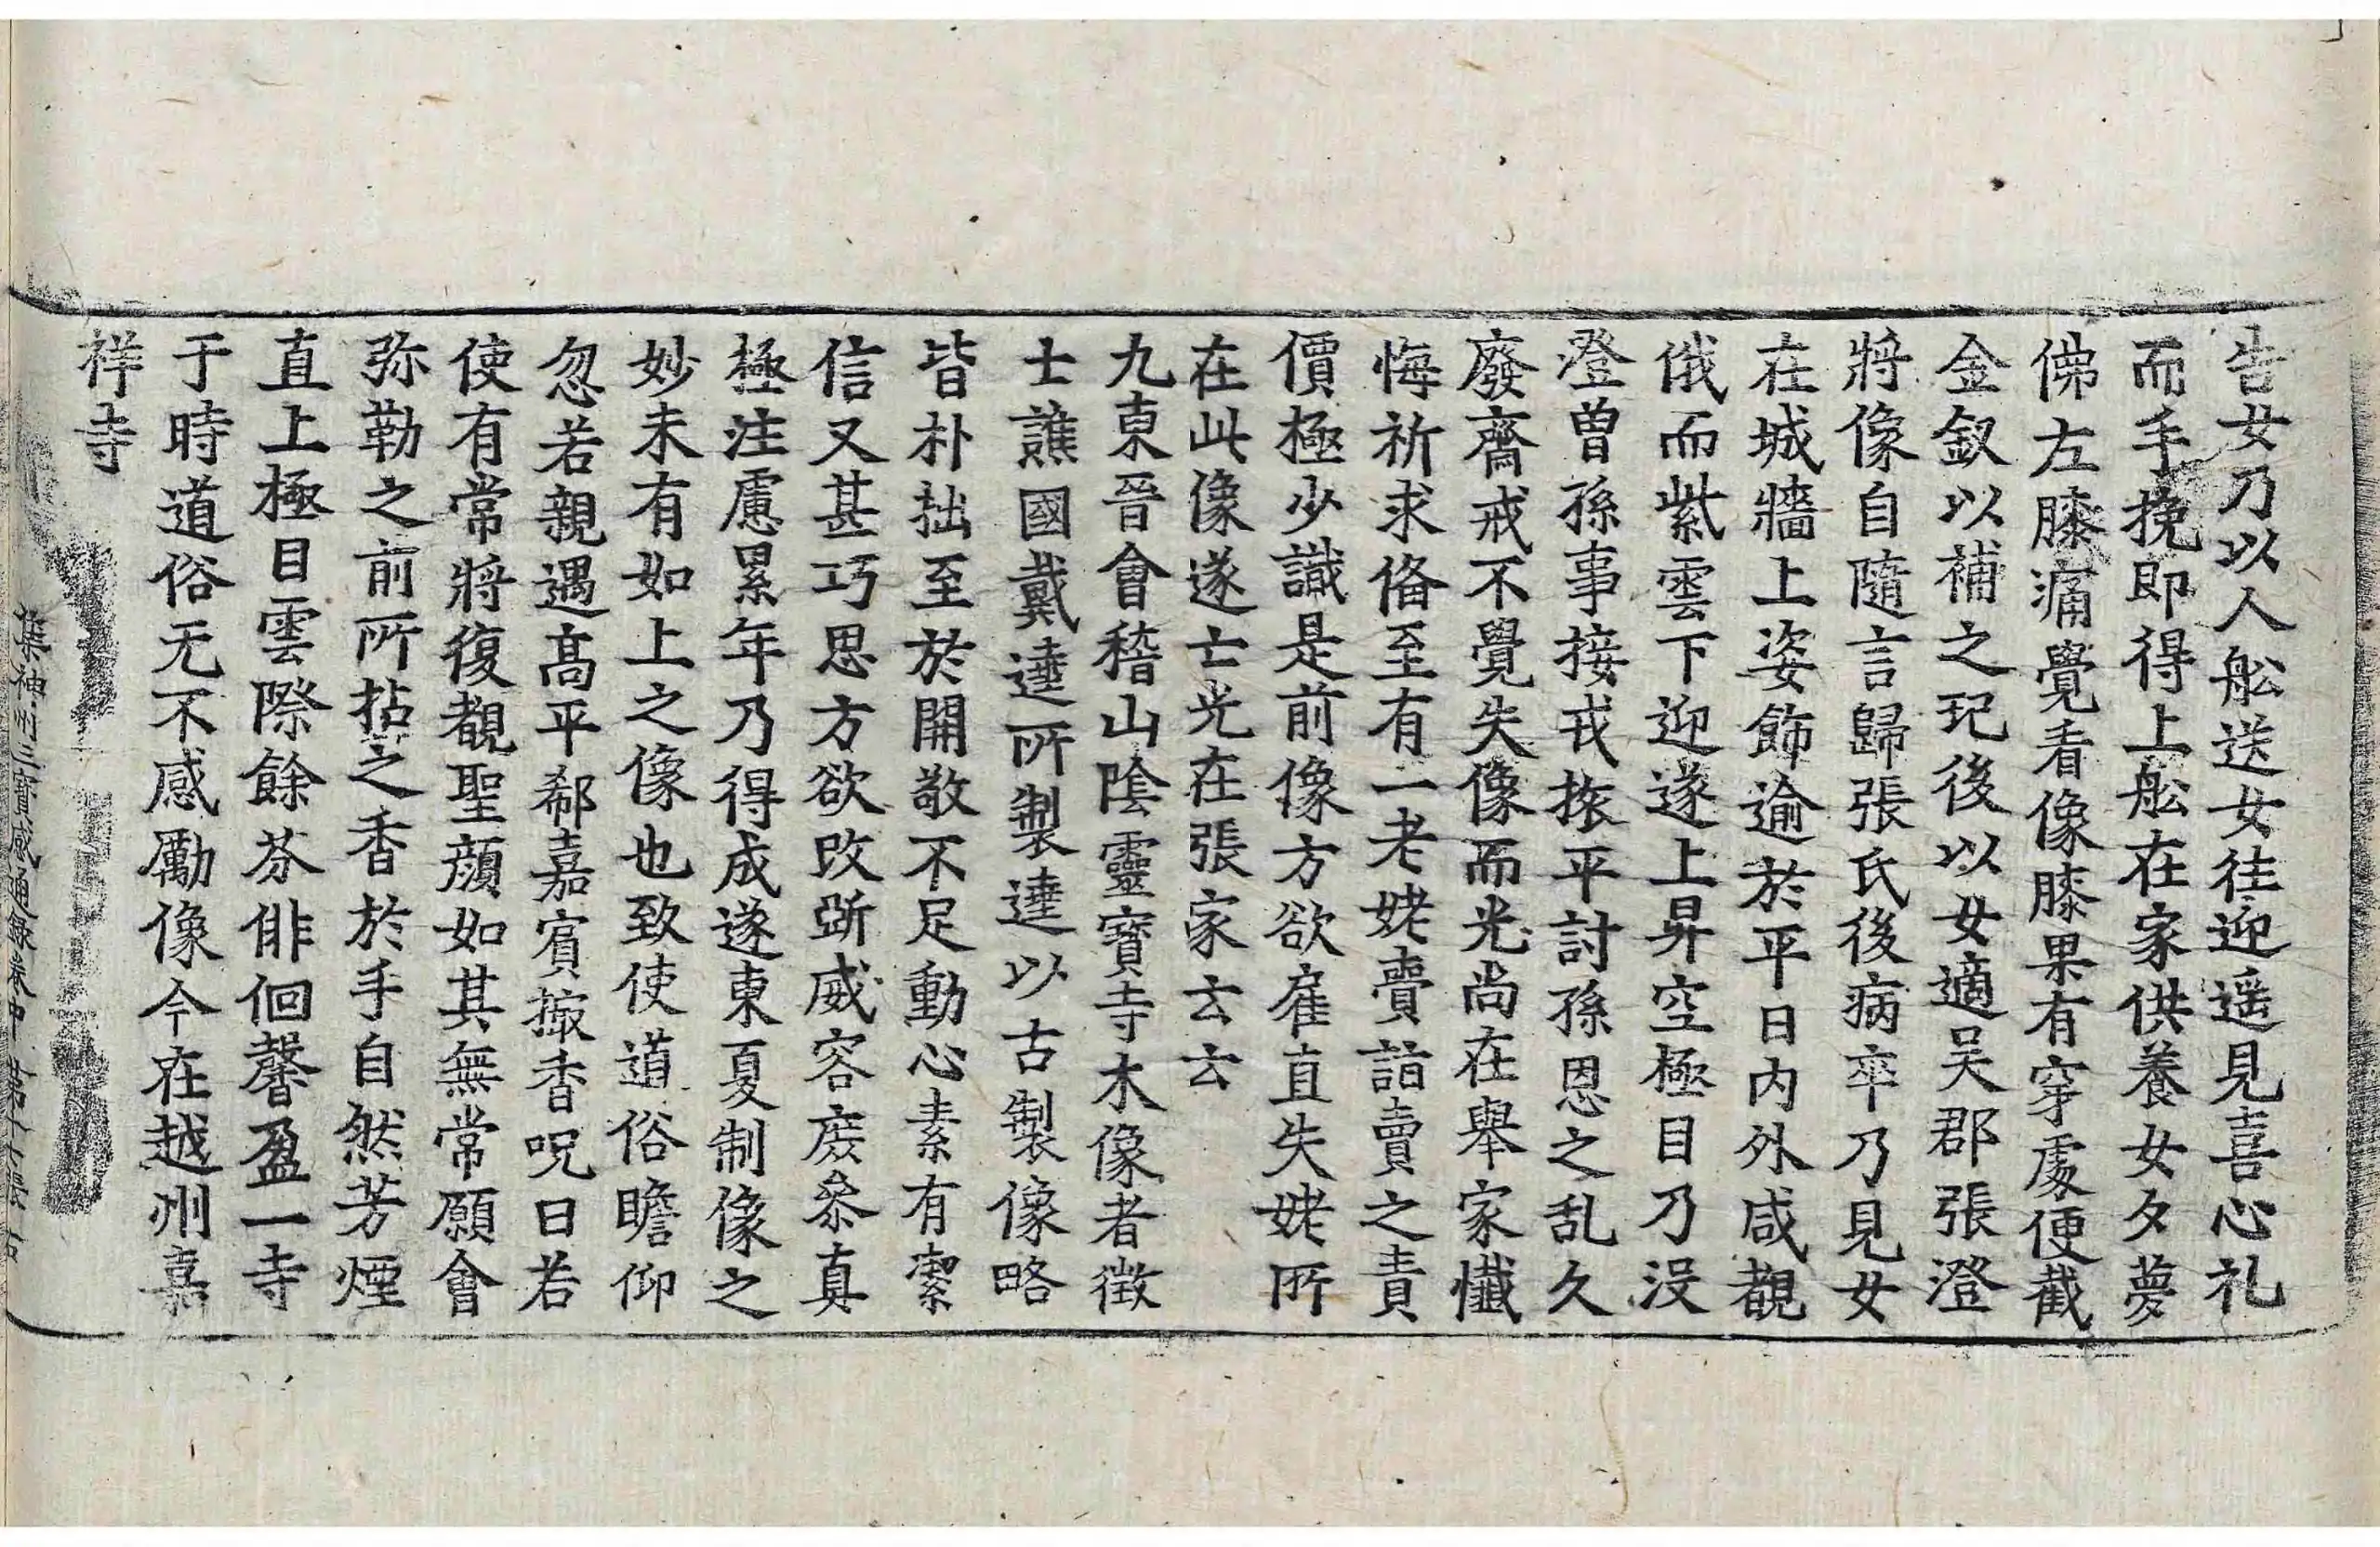 告女乃以人舩送女往迎遥見喜心礼
而手挽即得上舩在家供養女夕夢
佛左膝痛覺看像膝果有穿處便截
金釵以補之玘後以女適吴郡張澄
將像自隨言歸張氏後病卒乃見女
在城牆上姿飾逾於平日内外咸覩
俄而紫雲下迎遂上昇空極目乃没
澄曽孫事接戎振平討孫恩之乱久
廢齋戒不覺失像而光尚在舉家懺
悔祈求俻至有一老姥賣詣賣之責
價極少識是前像方欲雇直失姥所
在此像遂亡光在張家云云
九東晉會稽山陰靈寳寺木像者徴
士譙國戴逵所製逵以古製像略
皆朴拙至於開敬不足動心素有潔
信又甚巧思方欲改斵威容庻叅真
極注慮累年乃得成遂東夏制像之
妙未有如上之像也致使道俗瞻仰
忽若親遇髙平郗嘉賔撮香呪曰若
使有常將復覩聖顔如其無常願會
弥勒之前所拈之香於手自然芳煙
直上極目雲際餘芬俳佪馨盈一寺
于時道俗无不感勵像今在越州嘉
祥寺
集神州三寳感通録卷中